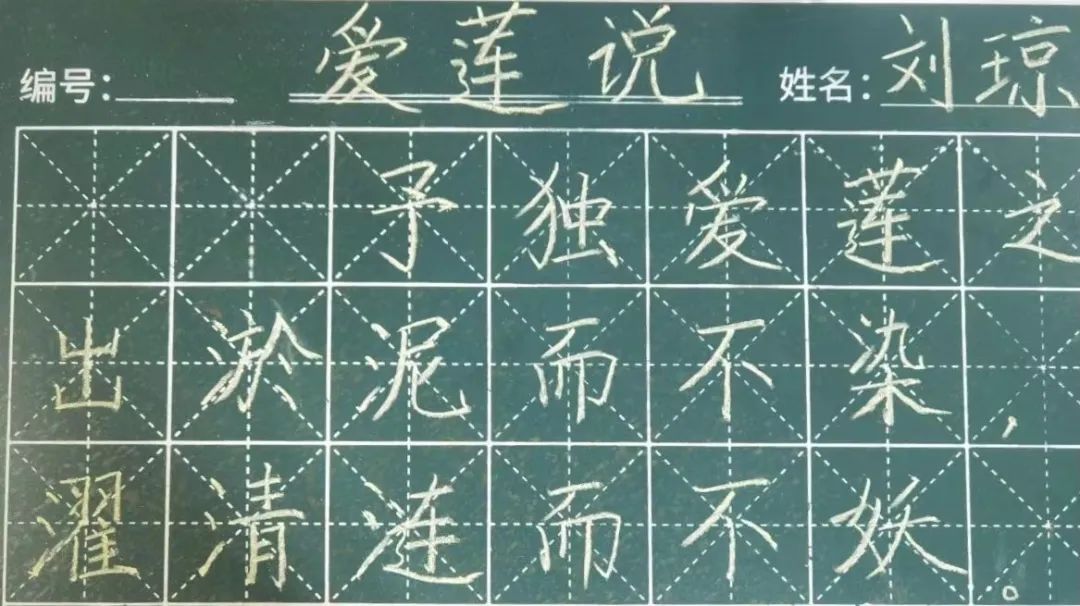 编号: 爱莲说 姓名: 刘琼
予独爱莲之
出淤泥而不染,
濯清涟而不妖。